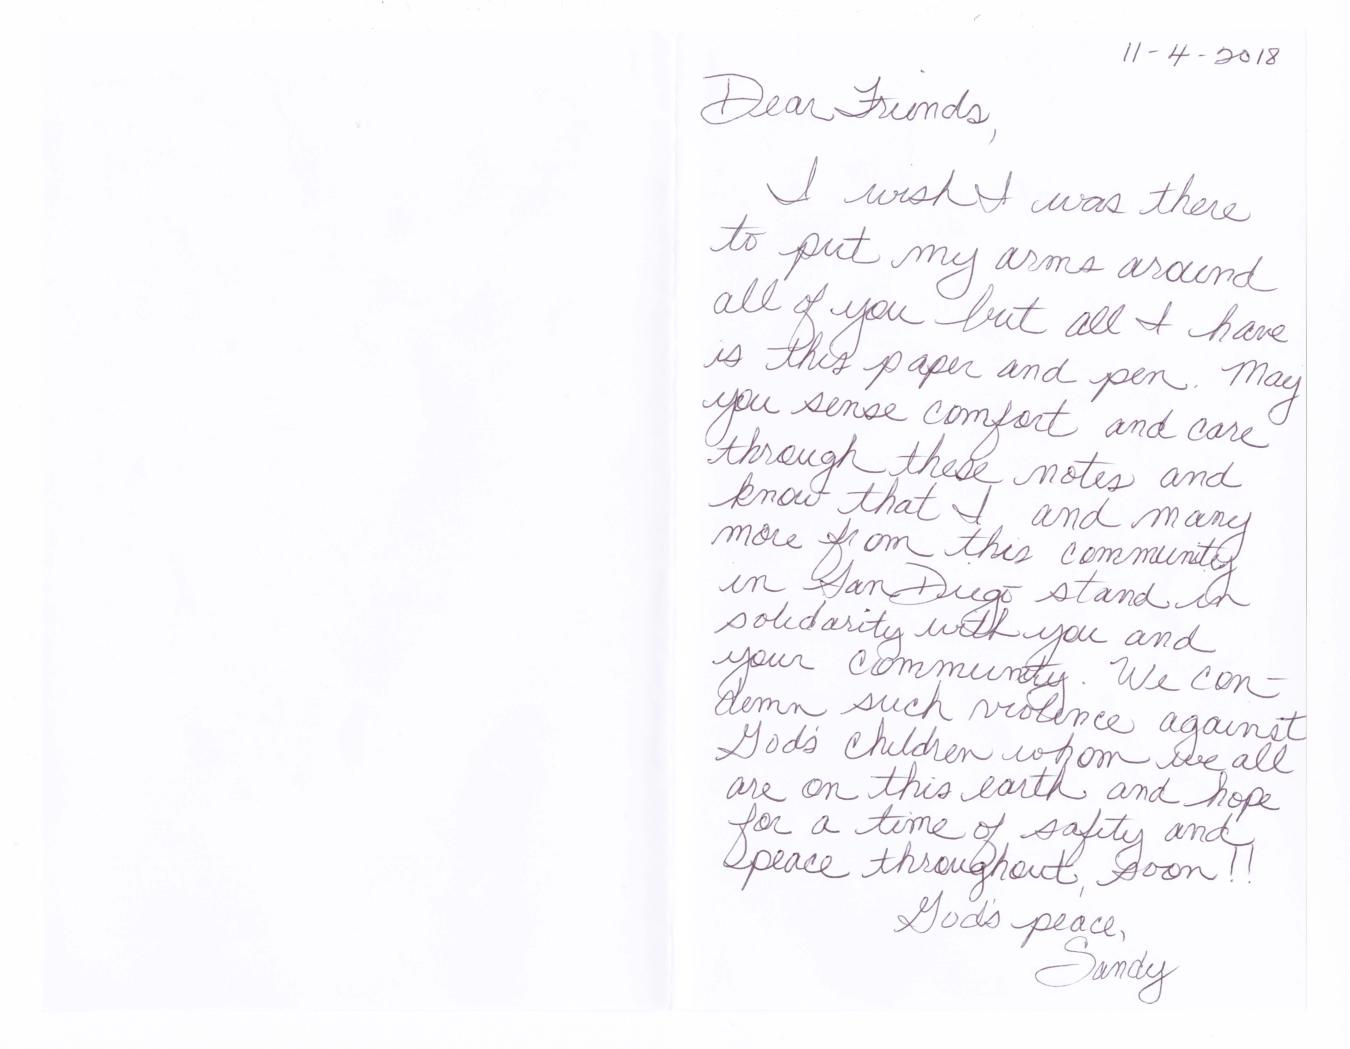 11-4-2018
Dear Friends,
I wish I was there
to put my arms around
all of you but all I have
is this paper and pen. May
you sense comfort and care
through these notes and
know that I and many
more from this community
in San Diego stand in
solidarity with you and
your community. We con-
demn such violence against
God's children whom we all
are on this earth and hope
for a time of safety and
peace throughout, soon!!
God's peace,
Sandy